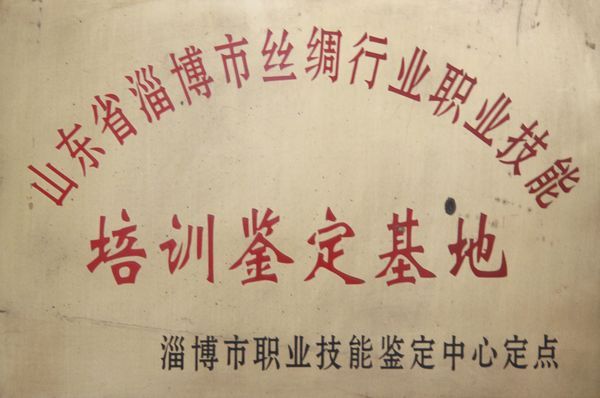 山东省淄博市丝绸行业职业技能
培训鉴定基地
淄博市职业技能鉴定中心定点